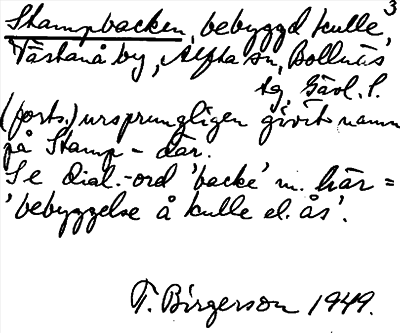 3
Stampbacken, bebyggd kulle,
Västanå by, Alfta sn, Bollnäs
tg, Gävl. l.
(forts.) ursprungligen givit namn
på Stamp - där.
Se dial.-ord 'backe' m. här =
'bebyggelse å kulle el. ås'.
T. Birgerson 1949.